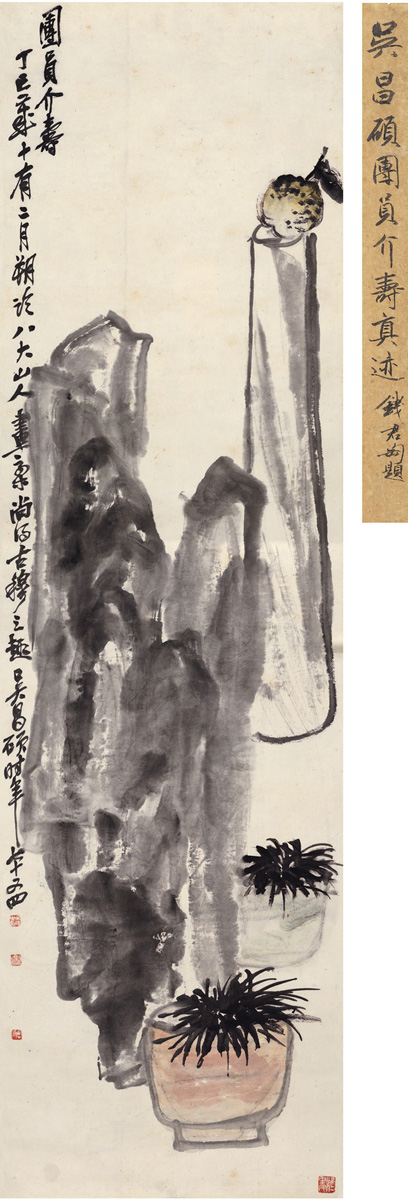 團員介壽
丁巳歲十有二月朔臨八大山人畫稾尚得古穆之趣吳昌碩時年七十四
吳昌碩團員介壽真迹
錢君匋題